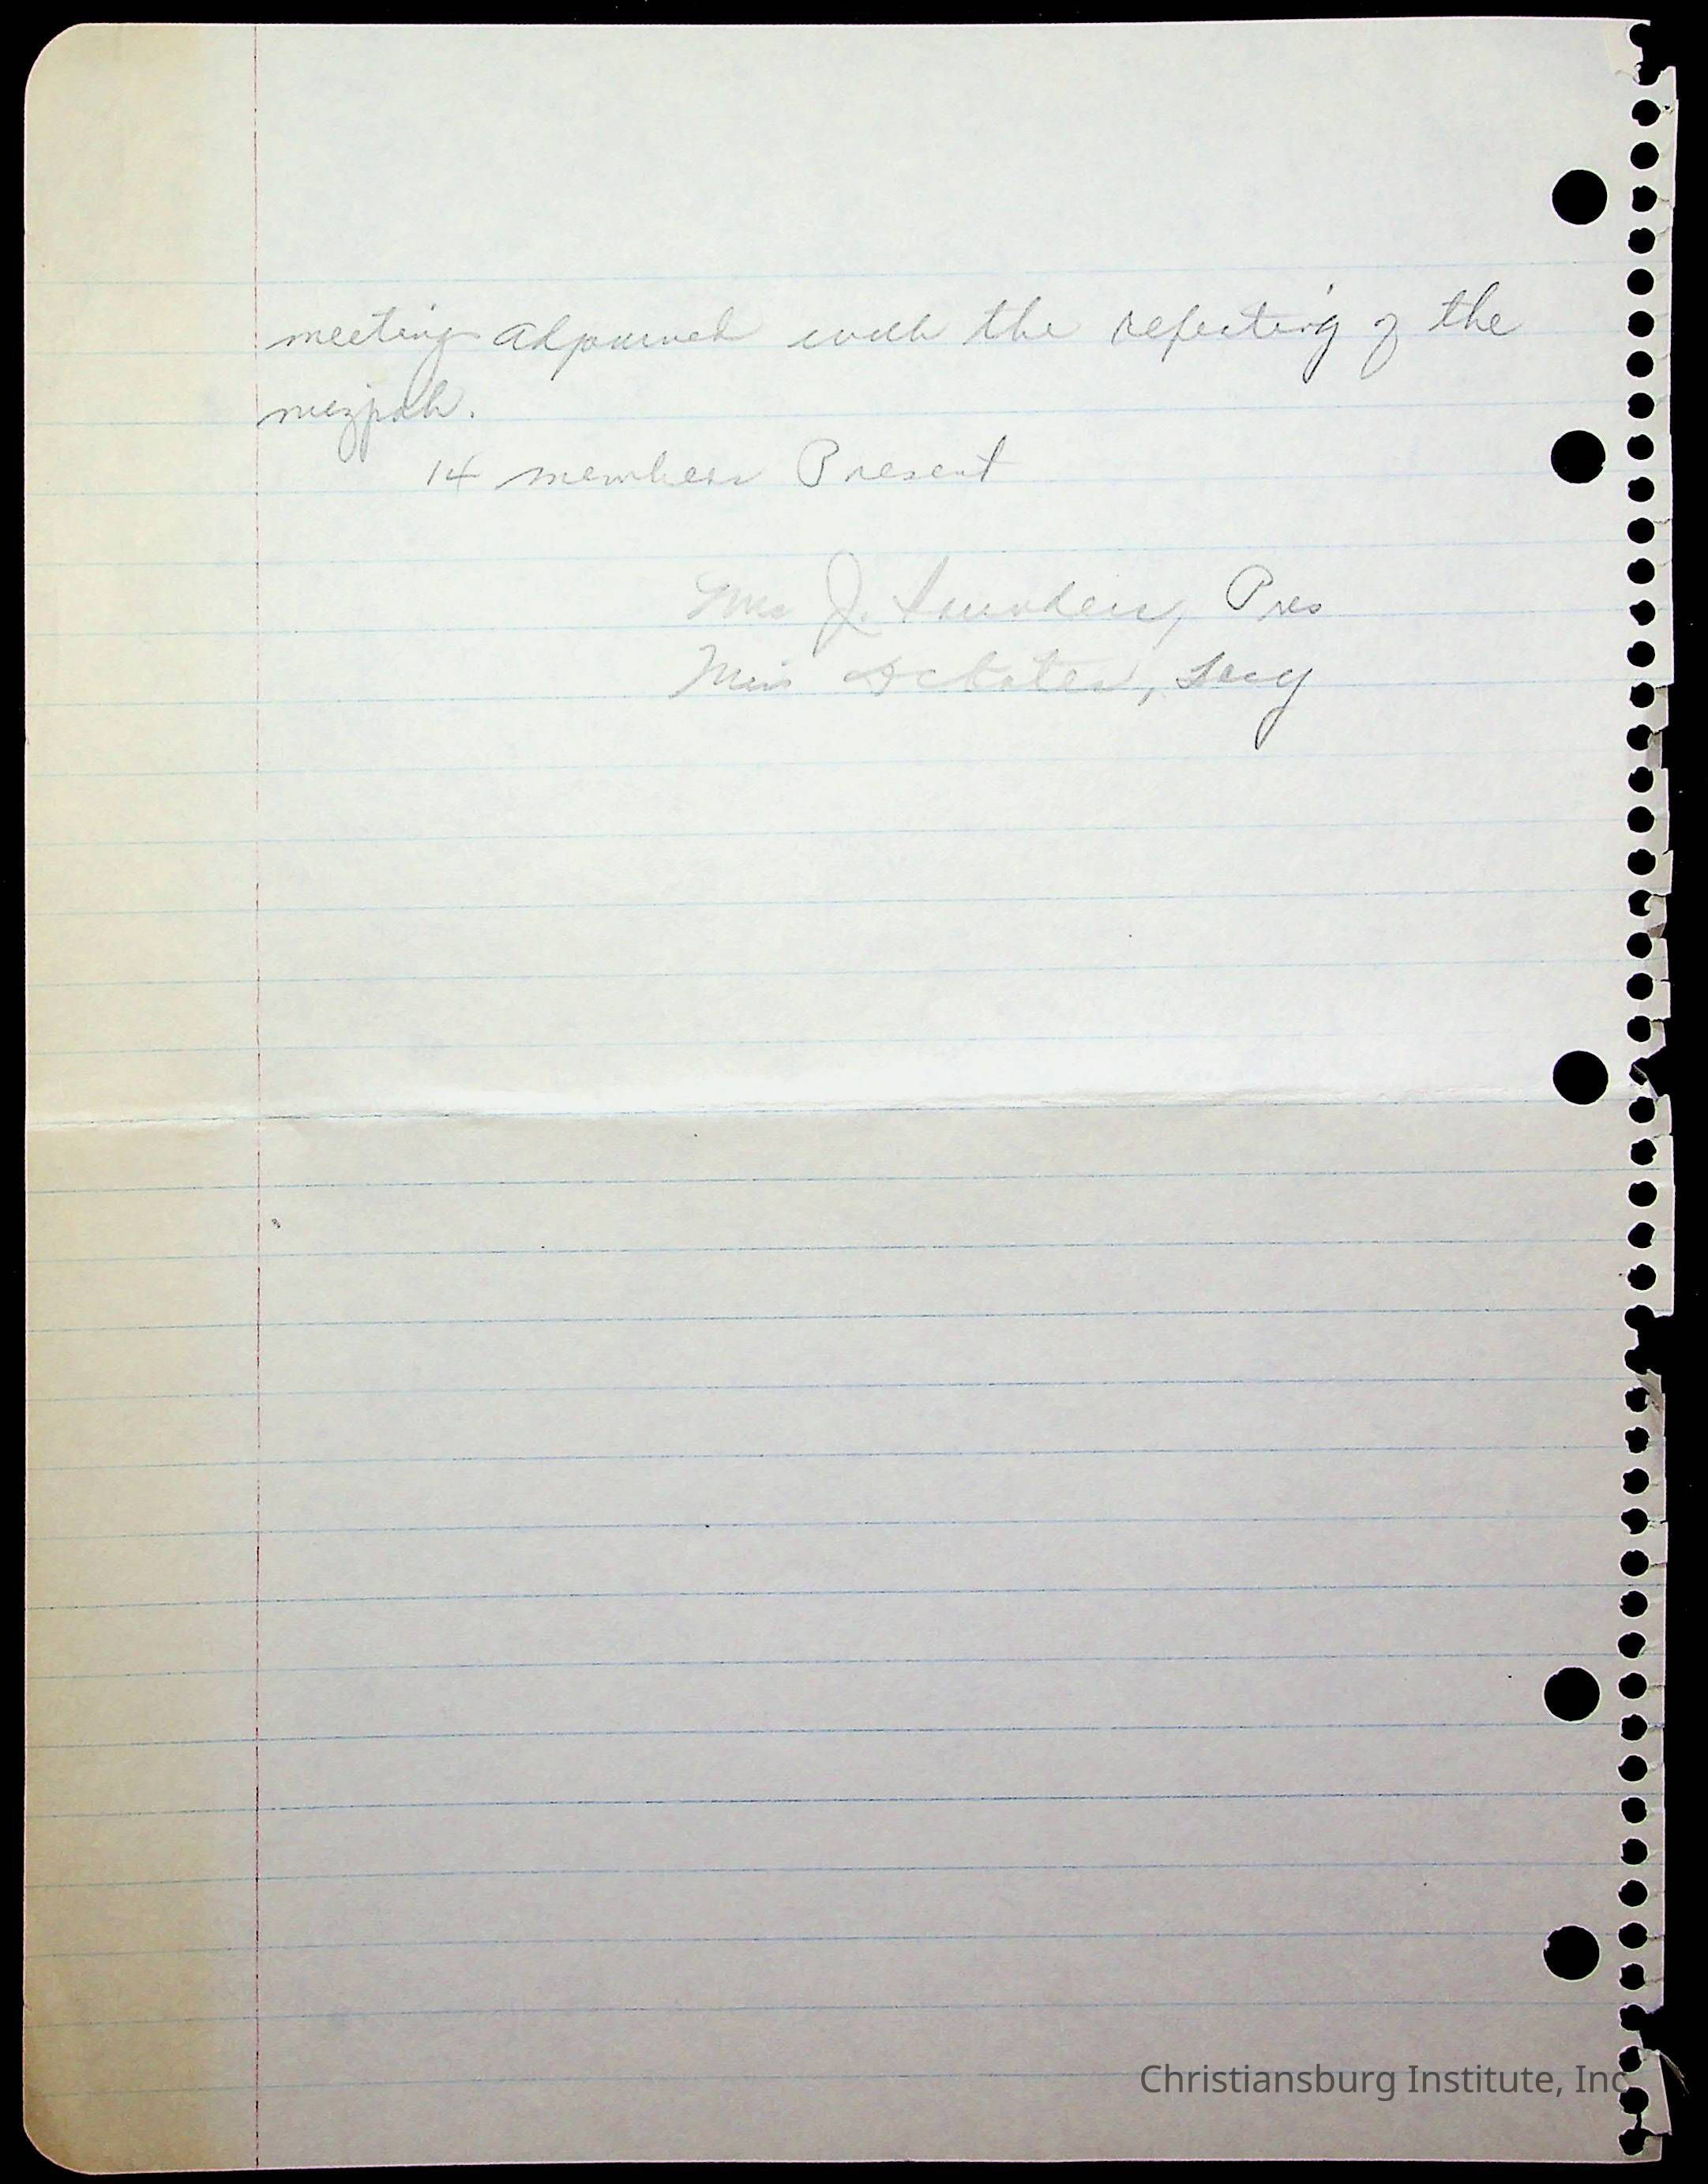 meeting adjourned with the repeating of the
mizpah.
14 members Present
Mrs J. Saunders, Pres
Miss Bates, Secy
Christiansburg Institute, Inc